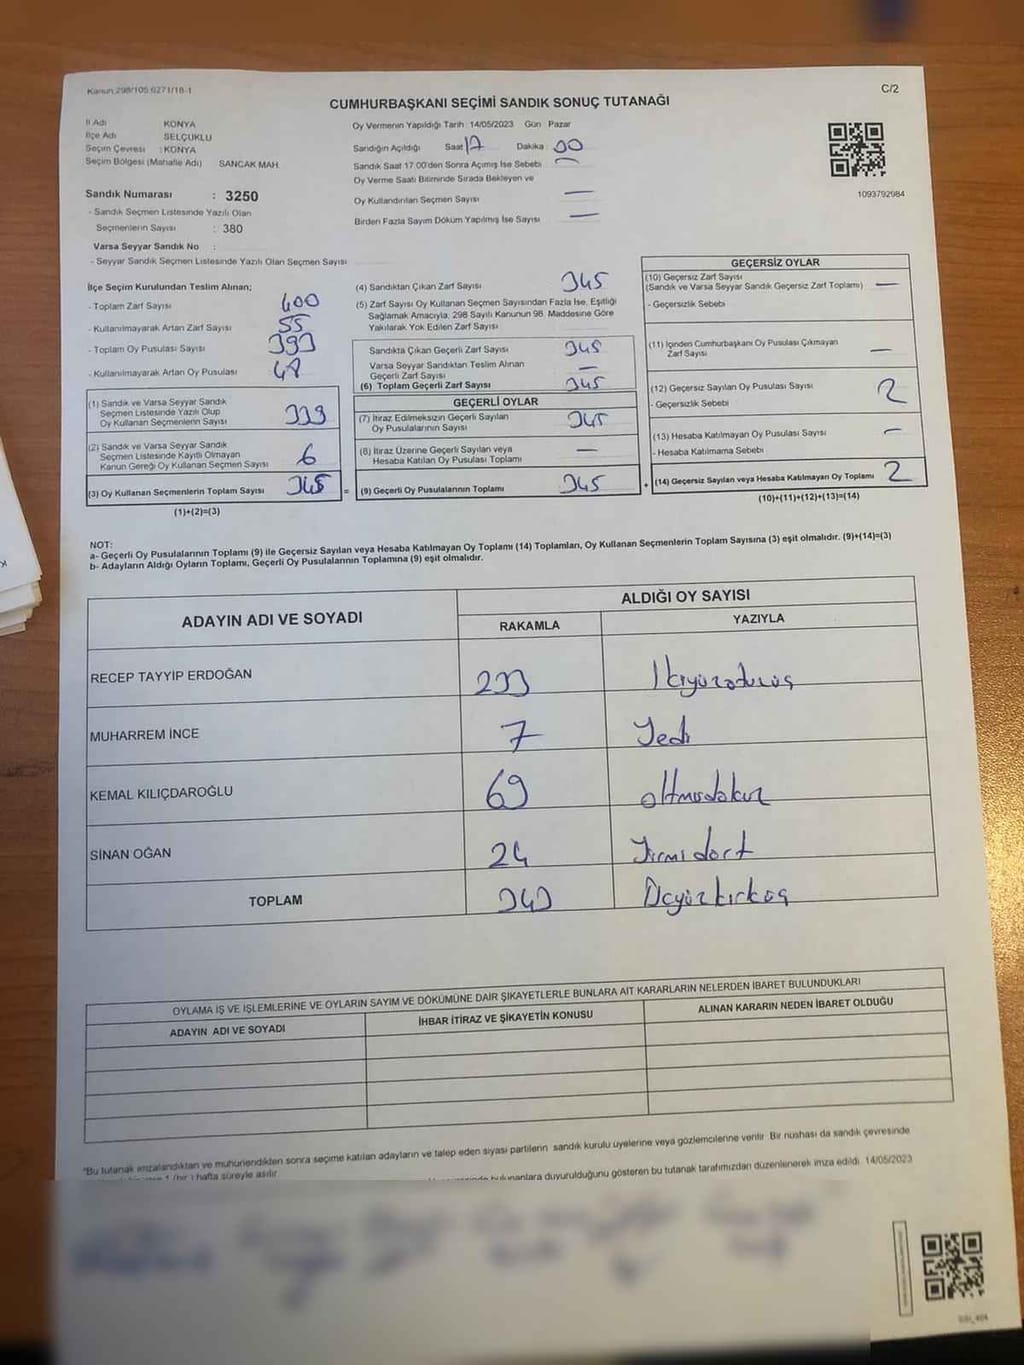 Kanun 298/105.6271/18-1
C/2
CUMHURBAŞKANI SEÇİMİ SANDIK SONUÇ TUTANAĞI
İl Adı KONYA
İlçe Adı SELÇUKLU
Seçim Çevresi : KONYA
Seçim Bölgesi (Mahalle Adı) SANCAK MAH.
Sandık Numarası : 3250
- Sandık Seçmen Listesinde Yazılı Olan
Seçmenlerin Sayısı : 380
Varsa Seyyar Sandık No :
- Seyyar Sandık Seçmen Listesinde Yazılı Olan Seçmen Sayısı
Oy Vermenin Yapıldığı Tarih 14/05/2023 Gün Pazar
Sandığın Açıldığı Saat 17 Dakika 00
Sandık Saat 17.00'den Sonra Açımış İse Sebebi —
Oy Verme Saati Bitiminde Sırada Bekleyen ve
Oy Kullandırılan Seçmen Sayısı —
Birden Fazla Sayım Döküm Yapılmış İse Sayısı —
1093792984
İlçe Seçim Kurulundan Teslim Alınan;
- Toplam Zarf Sayısı 400
- Kullanılmayarak Artan Zarf Sayısı 55
- Toplam Oy Pusulası Sayısı 393
- Kullanılmayarak Artan Oy Pusulası 48
(1) Sandık ve Varsa Seyyar Sandık
Seçmen Listesinde Yazılı Olup
Oy Kullanan Seçmenlerin Sayısı 339
(2) Sandık ve Varsa Seyyar Sandık
Seçmen Listesinde Kayıtlı Olmayan
Kanun Gereği Oy Kullanan Seçmen Sayısı 6
(3) Oy Kullanan Seçmenlerin Toplam Sayısı 345 =
(1)+(2)=(3)
(4) Sandıktan Çıkan Zarf Sayısı 345
(5) Zarf Sayısı Oy Kullanan Seçmen Sayısından Fazla İse, Eşitliği
Sağlamak Amacıyla, 298 Sayılı Kanunun 98. Maddesine Göre
Yakılarak Yok Edilen Zarf Sayısı
Sandıkta Çıkan Geçerli Zarf Sayısı 345
Varsa Seyyar Sandıktan Teslim Alınan
Geçerli Zarf Sayısı —
(6) Toplam Geçerli Zarf Sayısı 345
GEÇERLİ OYLAR
(7) İtiraz Edilmeksizin Geçerli Sayılan
Oy Pusulalarının Sayısı 345
(8) İtiraz Üzerine Geçerli Sayılan veya
Hesaba Katılan Oy Pusulası Toplamı —
(9) Geçerli Oy Pusulalarının Toplamı 345 +
GEÇERSİZ OYLAR
(10) Geçersiz Zarf Sayısı
(Sandık ve Varsa Seyyar Sandık Geçersiz Zarf Toplamı) —
- Geçersizlik Sebebi
(11) İçinden Cumhurbaşkanı Oy Pusulası Çıkmayan
Zarf Sayısı —
(12) Geçersiz Sayılan Oy Pusulası Sayısı 2
- Geçersizlik Sebebi
(13) Hesaba Katılmayan Oy Pusulası Sayısı —
- Hesaba Katılmama Sebebi
(14) Geçersiz Sayılan veya Hesaba Katılmayan Oy Toplamı 2
(10)+(11)+(12)+(13)=(14)
NOT:
a- Geçerli Oy Pusulalarının Toplamı (9) ile Geçersiz Sayılan veya Hesaba Katılmayan Oy Toplamı (14) Toplamları, Oy Kullanan Seçmenlerin Toplam Sayısına (3) eşit olmalıdır. (9)+(14)=(3)
b- Adayların Aldığı Oyların Toplamı, Geçerli Oy Pusulalarının Toplamına (9) eşit olmalıdır.
ADAYIN ADI VE SOYADI ALDIĞI OY SAYISI
RAKAMLA YAZIYLA
RECEP TAYYİP ERDOĞAN 233
MUHARREM İNCE 7 Yedi
KEMAL KILIÇDAROĞLU 69 altmışdokuz
SİNAN OĞAN 24 Yirmi dört
TOPLAM 343 Üçyüzkırküç
OYLAMA İŞ VE İŞLEMLERİNE VE OYLARIN SAYIM VE DÖKÜMÜNE DAİR ŞİKAYETLERLE BUNLARA AİT KARARLARIN NELERDEN İBARET BULUNDUKLARI
ADAYIN ADI VE SOYADI İHBAR İTİRAZ VE ŞİKAYETİN KONUSU ALINAN KARARIN NEDEN İBARET OLDUĞU
*Bu tutanak imzalandıktan ve mühürlendikten sonra seçime katılan adayların ve talep eden siyasi partilerin sandık kurulu üyelerine veya gözlemcilerine verilir. Bir nüshası da sandık çevresinde
1 (bir ) hafta süreyle asılır.
bulunanlara duyurulduğunu gösteren bu tutanak tarafımızdan düzenlenerek imza edildi. 14/05/2023